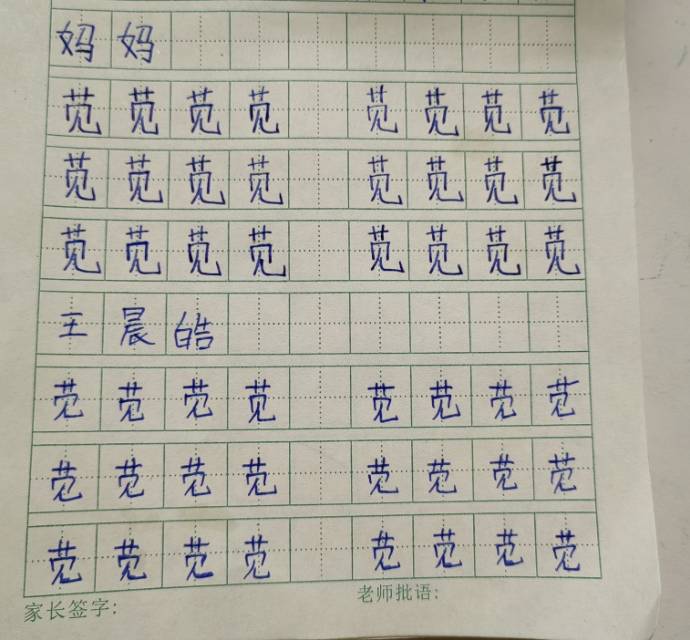 妈妈
苋苋苋苋 苋苋苋苋
苋苋苋苋 苋苋苋苋
苋苋苋苋 苋苋苋苋
王晨皓
苋苋苋苋 苋苋苋苋
苋苋苋苋 苋苋苋苋
苋苋苋苋 苋苋苋苋
家长签字: 老师批语: